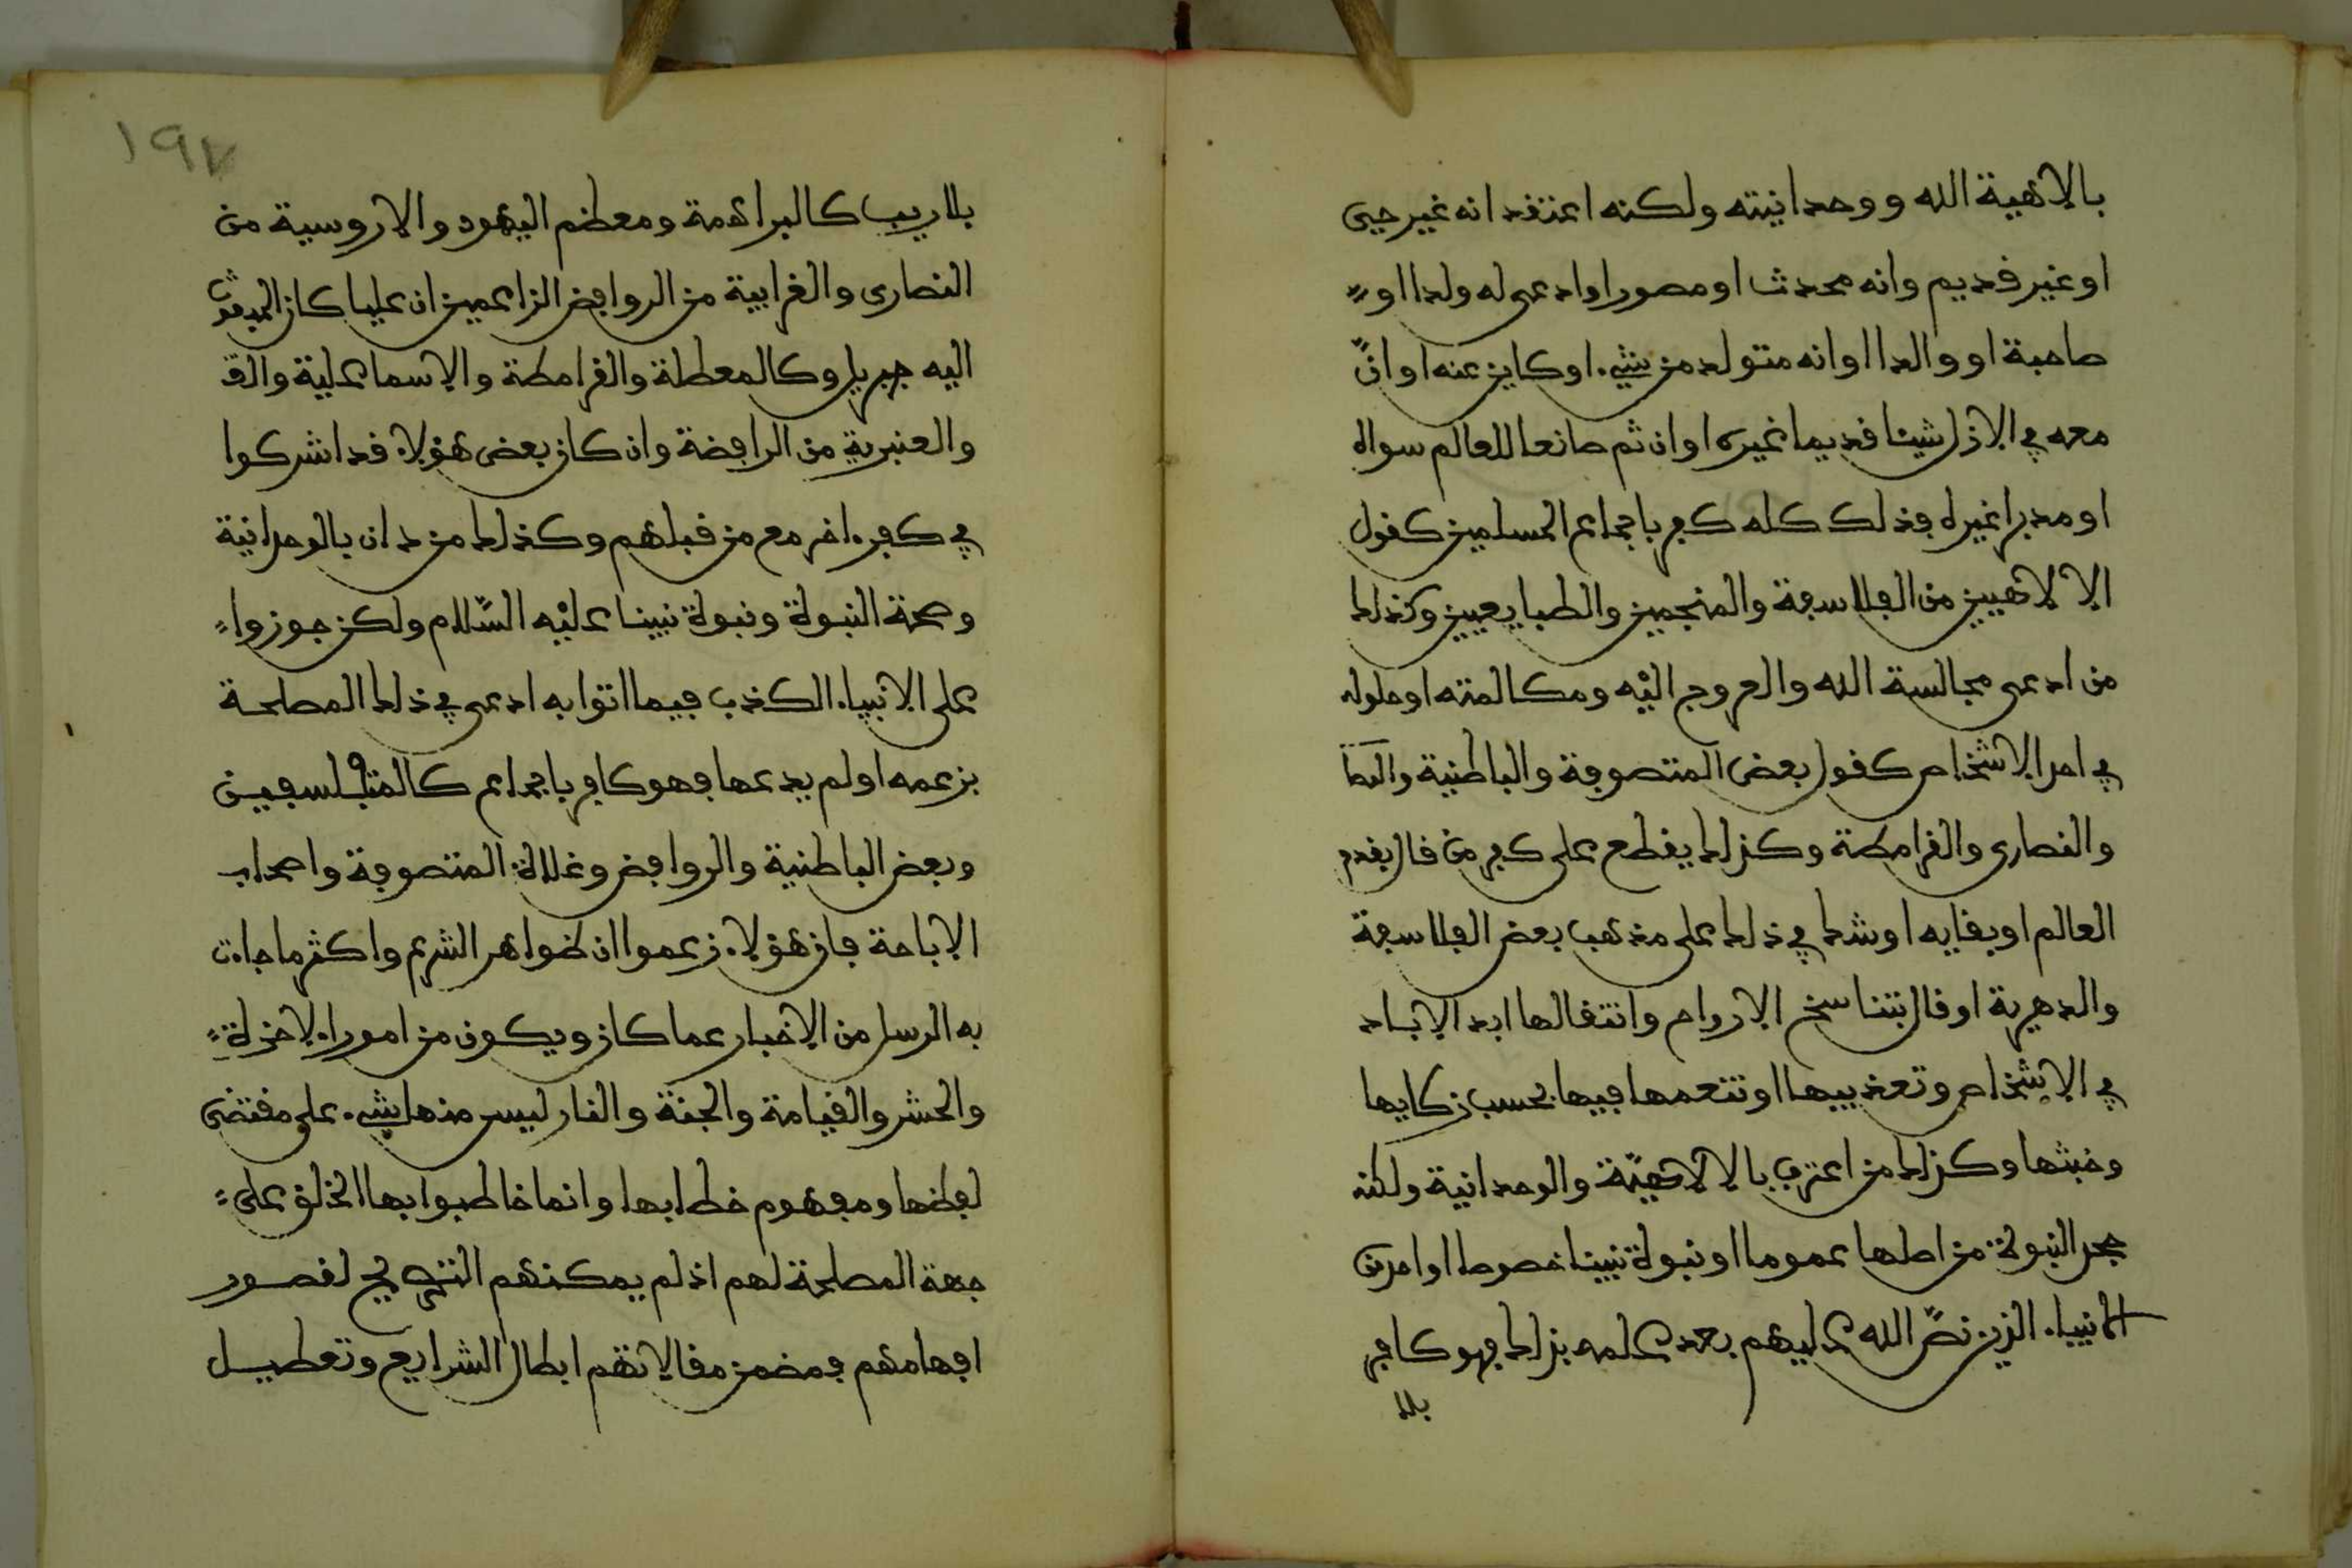 بالاهية الله ووحدانيته ولكنه اعتقد انه غير حيى
او غير قديم وانه محدث او مصور او ادعى له ولدا او
صاحبة او والدا او انه متولد من شيء او كاين عنه او ان
معه في الازل شيئا قديما غيره او ان ثم صانعا للعالم سواه
او مدبرا غيره فذلك كله كفر باجماع المسلمين كقول
الالاهيين من الفلاسفة والمنجمين والطبايعيين وكذلك
من ادعى مجالسة الله والعروج اليه ومكالمته او حلوله
في احد الاشخاص كقول بعض المتصوفة والباطنية
والنصارى والقرامطة وكذلك يقطع على كفر من قال بقدم
العالم او بقايه او شك في ذلك على مذهب بعض الفلاسفة
والدهرية او قال بتناسخ الارواح وانتقالها ابد الاباد
في الاشخاص وتعذيبها او تنعمها فيها بحسب زكايها
وخبثها وكذلك من اعترف بالالاهية والوحدانية ولكنه
جحد النبوة من اصلها عموما او نبوة نبينا خصوصا او احد من
الانبياء الذين نص الله عليهم بعد علمه بذلك فهو كافر
بلا
١٩٧
بلا ريب كالبراهمة ومعظم اليهود والاروسية من
النصارى والغرابية من الروافض الزاعمين ان عليا كان المبعوث
اليه جبريل وكالمعطلة والقرامطة والاسماعلية
والعنبرية من الرافضة وان كان بعض هؤلاء قد اشركوا
في كفر اخر مع من قبلهم وكذلك من دان بالوحدانية
وصحة النبوة ونبوة نبينا عليه السلام ولكن جوزوا
على الانبياء الكذب فيما اتوا به ادعى في ذلك المصلحة
بزعمه او لم يدعها فهو كافر باجماع كالمتفلسفين
وبعض الباطنية والروافض وغلاة المتصوفة واصحاب
الاباحة فان هؤلاء زعموا ان ظواهر الشرع واكثر ما جاءت
به الرسل من الاخبار عما كان ويكون من امور الاخرة
والحشر والقيامة والجنة والنار ليس منها شيء على مقتضى
لفظها ومفهوم خطابها وانما خاطبوا بها الخلق على
جهة المصلحة لهم اذ لم يمكنهم التصريح لقصور
افهامهم فمضمن مقالاتهم ابطال الشرايع وتعطيل